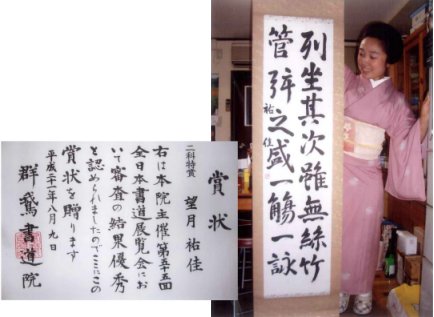 賞状
二科特賞
望月祐佳
右は本院主催第五十五回
全日本書道展覧会にお
いて審査の結果優秀
と認められましたのでここにこの
賞状を贈ります
平成二十一年八月九日
群鵞書道院
列坐其次雖無絲竹
管弦之盛一觴一詠
祐佳